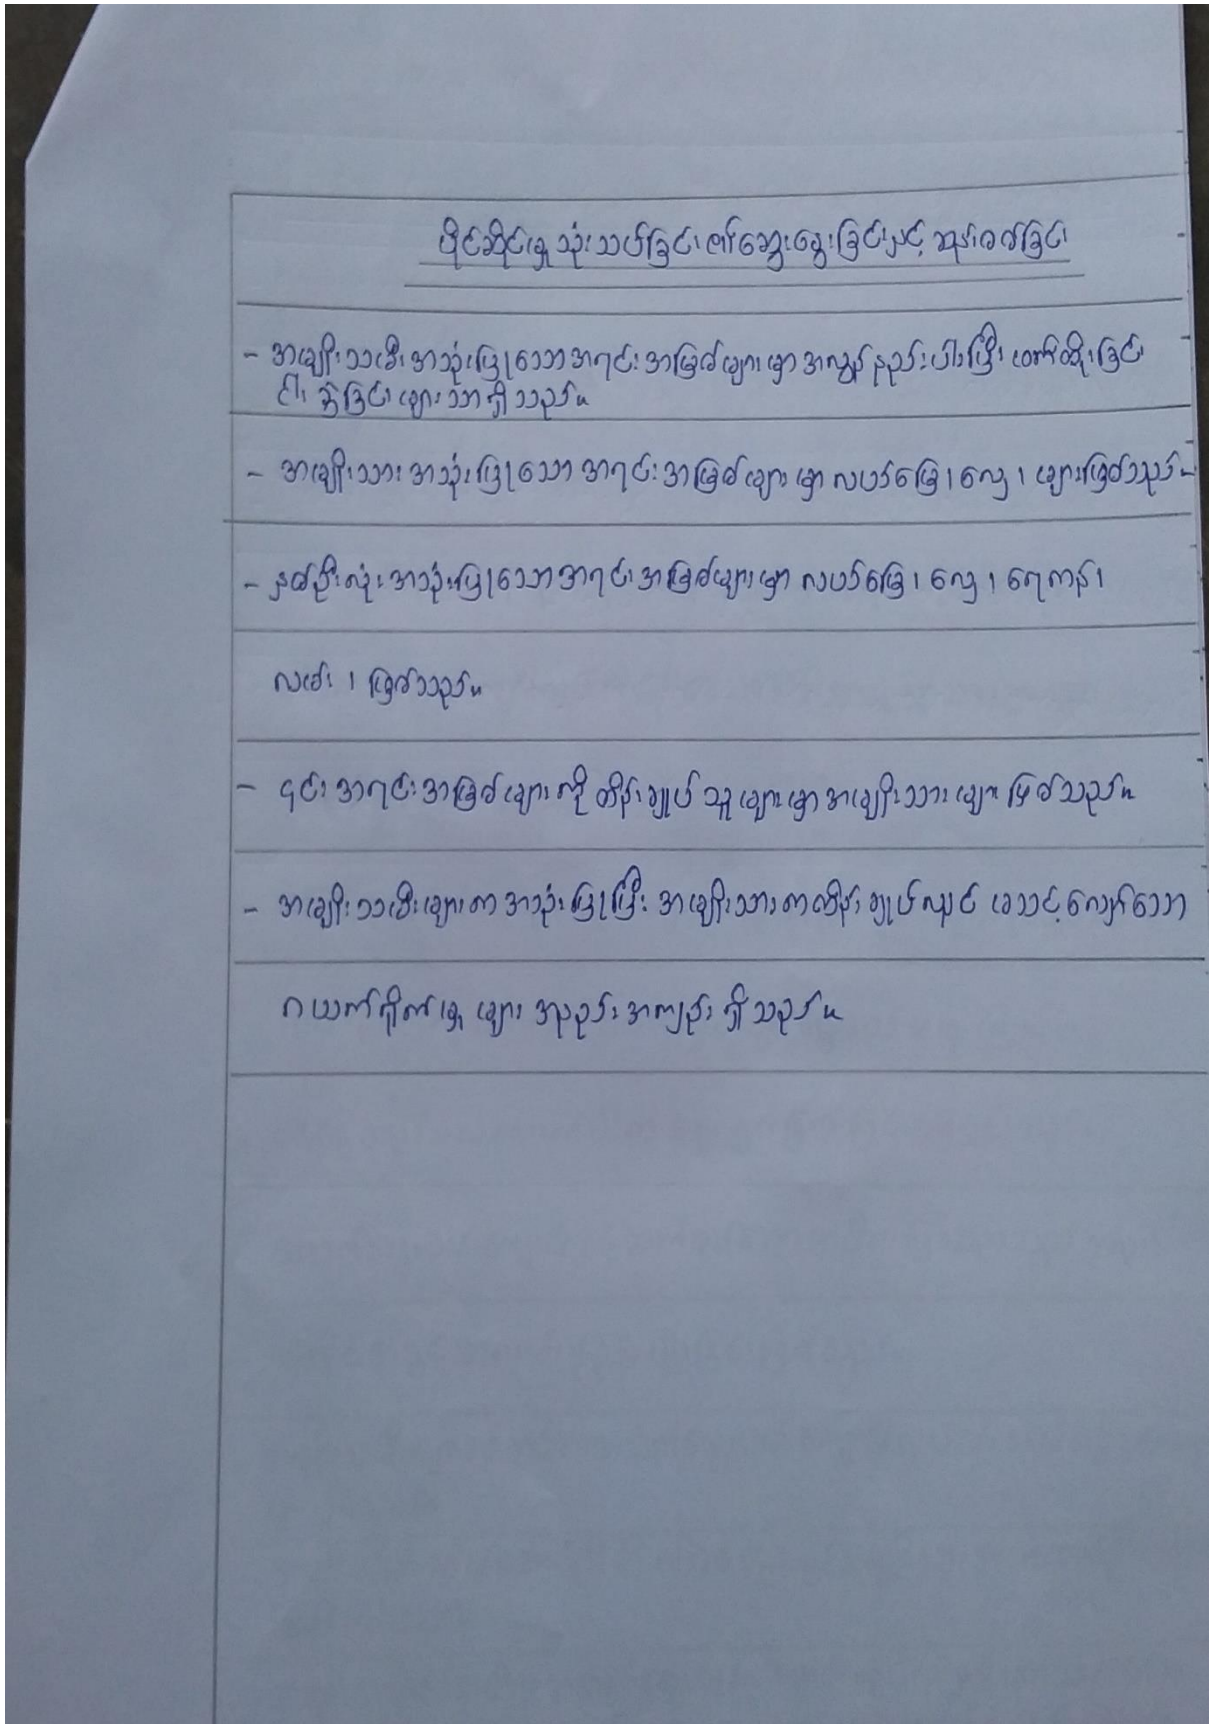 ပိုင်ဆိုင်မှု သုံးသပ်ခြင်း၊ ဆွေးနွေးခြင်းနှင့် ဆုံးဖြတ်ခြင်း
- အမျိုးသမီး အသုံးပြုသော အရင်းအမြစ်များမှာ အလွန်နည်းပါးပြီး ဖက်ထိုးခြင်း
ငါးမျှားခြင်းများသာ ရှိသည်။
- အမျိုးသား အသုံးပြုသော အရင်းအမြစ်များမှာ လယ်မြေ၊ လှေ၊ များဖြစ်သည်။
- နှစ်ဦးလုံး အသုံးပြုသော အရင်းအမြစ်များမှာ လယ်မြေ၊ လှေ၊ ရေကန်၊
လမ်း၊ ဖြစ်သည်။
- ၎င်းအရင်းအမြစ်များကို ထိန်းချုပ်သူများမှာ အမျိုးသားများ ဖြစ်သည်။
- အမျိုးသမီးများက အသုံးပြုပြီး အမျိုးသားကထိန်းချုပ်လျှင် မသင့်လျော်သော
ဂယက်ရိုက်မှုများ အနည်းအကျဉ်းရှိသည်။